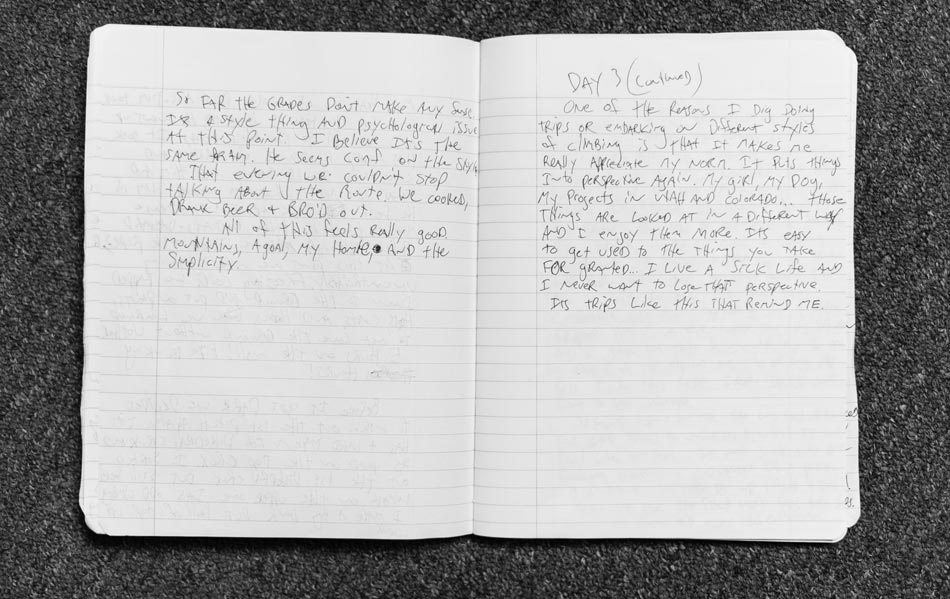 So FAR the GRADES Don't MAKE Any Sense
It's a style thing AND psychological issue
At this point. I Believe it's the
same again. He seems conf on the
That evening we couldn't stop
talking About the Route. We cooked,
DRANK BEER + BRO'D OUT.
All of this feels Really good
Mountains, A goal, My Home, AND the
Simplicity.
DAY 3 (continued)
One of the Reasons I Dig Doing
trips or embarking on Different styles
of climbing is that It makes me
Really Appreciate my norm. It Puts things
Into perspective Again. My girl, My Dog,
My Projects in UTAH AND Colorado... those
Things ARE looked AT in A Different way
AND I enjoy them more. Its easy
to get used to the things you take
FOR granted... I Live A SICK Life AND
I never want to lose THAT perspective.
Its trips Like this THAT Remind ME.